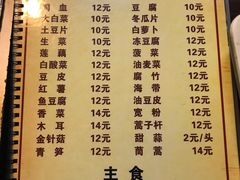 血 12元 豆腐 10元
大白菜 10元 冬瓜片 10元
土豆片 10元 白萝卜 10元
生菜 12元 冻豆腐 12元
莲藕 12元 菠菜 12元
白酸菜 12元 油麦菜 12元
豆皮 12元 腐竹 12元
红薯 12元 海带 12元
鱼豆腐 12元 油豆皮 12元
香菜 14元 宽粉 12元
木耳 14元 蒿子杆 12元
金针菇 12元 甜蒜 2元/头
青笋 12元 茼蒿 14元
主食